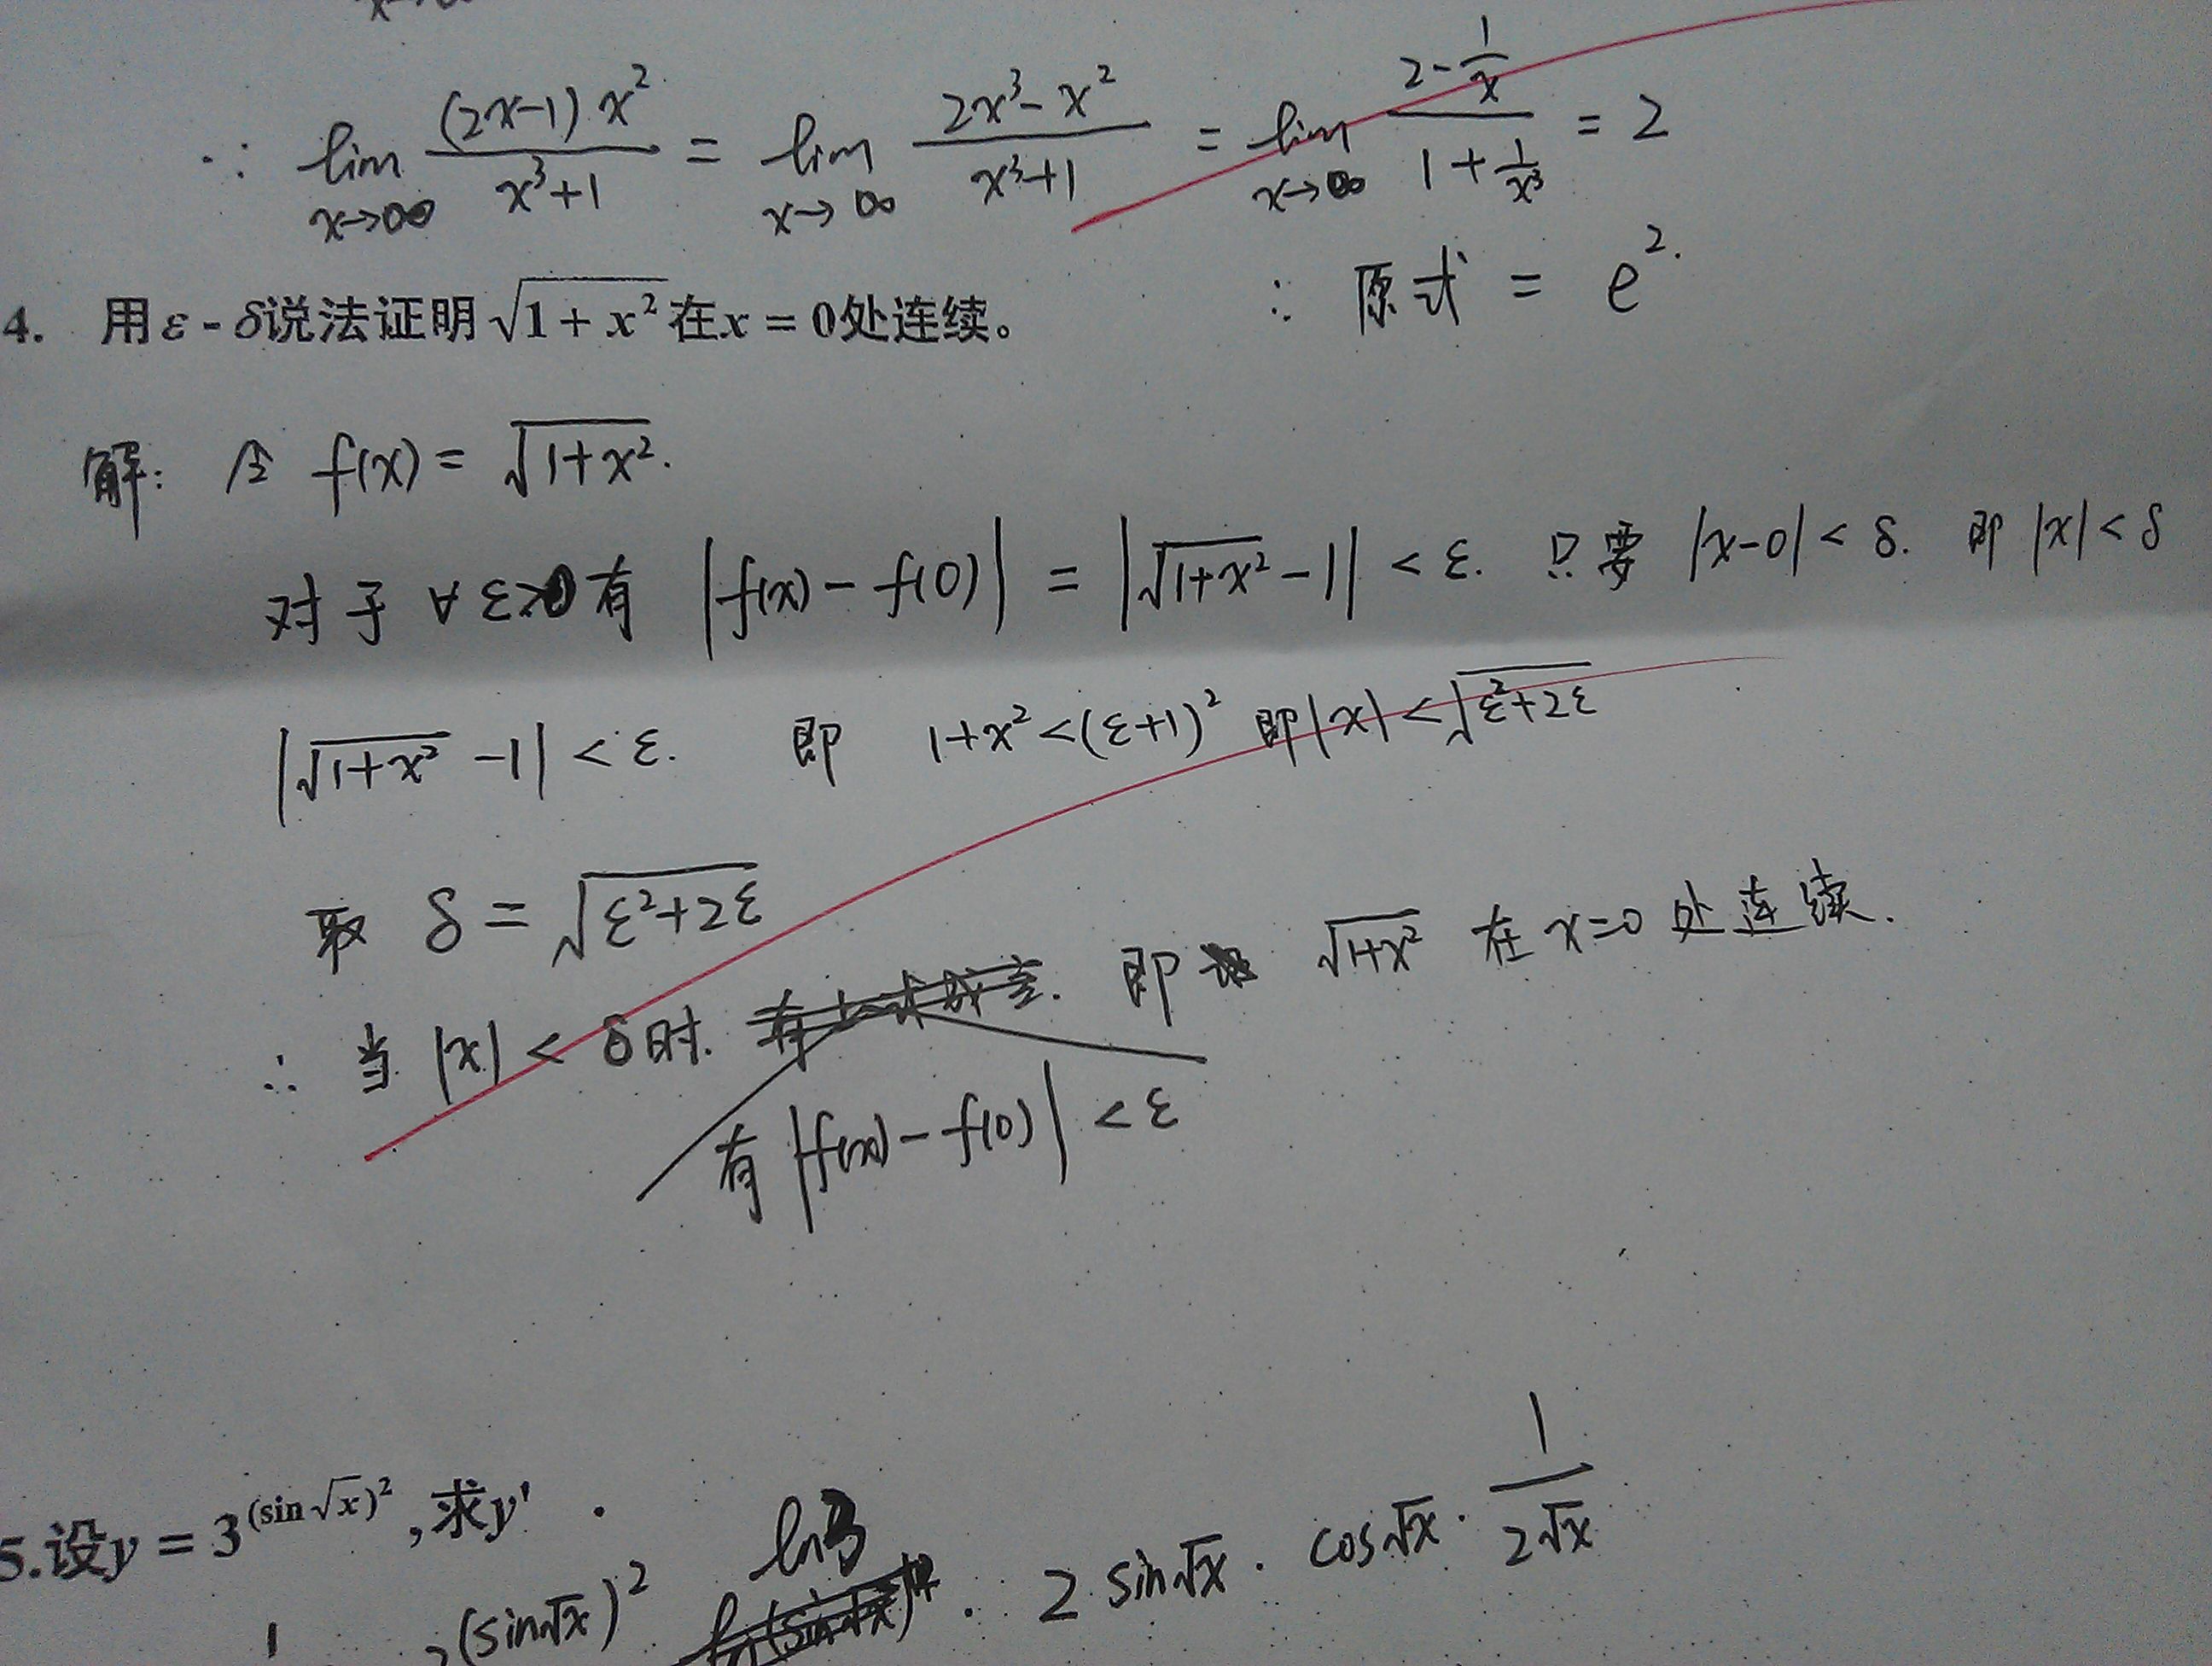 ∵ lim x→∞ (2x-1)x²/(x³+1) = lim x→∞ (2x³-x²)/(x³+1) = lim x→∞ (2-1/x)/(1+1/x³) = 2
∴ 原式 = e².
4. 用ε-δ说法证明√(1+x²)在x=0处连续。
解: 令 f(x) = √(1+x²).
对于 ∀ ε>0 有 |f(x)-f(0)| = |√(1+x²)-1| < ε. 只要 |x-0| < δ. 即 |x| < δ
|√(1+x²)-1| < ε. 即 1+x² < (ε+1)² 即|x| < √(ε²+2ε)
取 δ = √(ε²+2ε)
∴ 当 |x| < δ时. 即 √(1+x²) 在 x=0 处连续.
有 |f(x)-f(0)| < ε
5.设y = 3^(sin√x)², 求y' .
(sin√x)² · ln3 · 2 sin√x · cos√x · 1/(2√x)